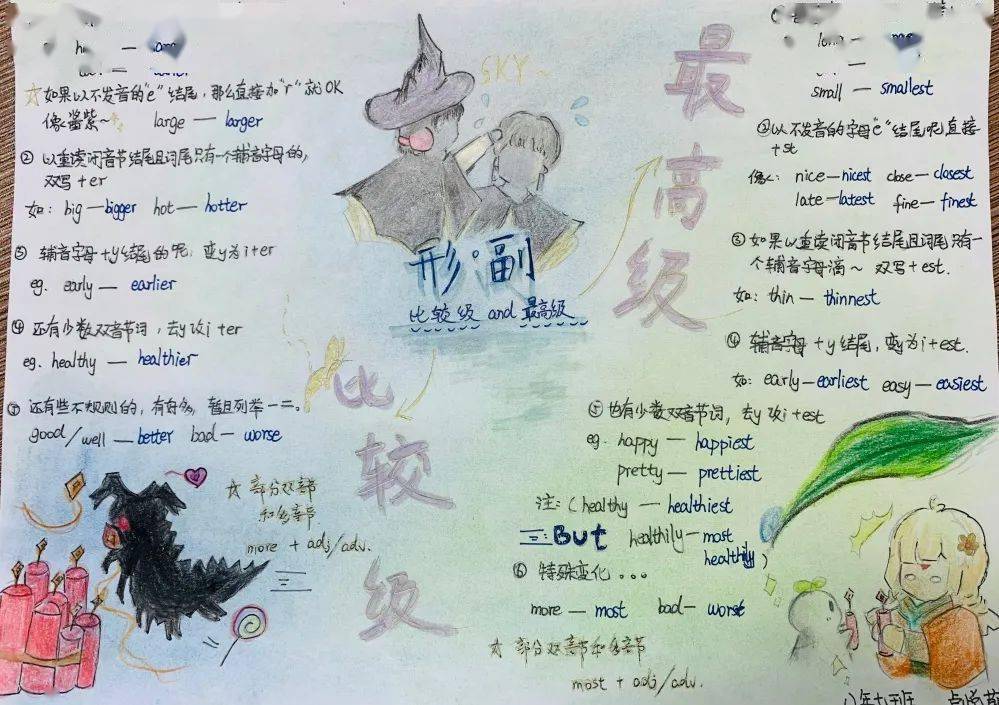 ☆如果以不发音的"e"结尾,那么直接加"r"就OK
像酱紫~ large — larger
② 以重读闭音节结尾且词尾只有一个辅音字母的,
双写+er
如: big — bigger hot — hotter
③ 辅音字母+y结尾的呢:变y为i+er
eg. early — earlier
④ 还有少数双音节词,去y改i ter
eg. healthy — healthier
⑤ 还有些不规则的,有好多,暂且列举一二。
good/well — better bad — worse
☆ 部分双音节
和多音节
more + adj/adv.
SKY~
形·副
比较级 and 最高级
比较级
最高级
small — smallest
②以不发音的字母"e"结尾呢直接
+st
像: nice — nicest close — closest
late — latest fine — finest
③ 如果以重读闭音节结尾且词尾只有一
个辅音字母滴~ 双写+est.
如: thin — thinnest
④ 辅音字母+y结尾,变y为i+est.
如: early — earliest easy — easiest
⑤ 也有少数双音节词,去y改i+est
eg. happy — happiest
pretty — prettiest
注:(healthy — healthiest
But healthily — most
healthily)
⑥ 特殊变化。。。
more — most bad — worst
☆ 部分双音节和多音节
most + adj/adv.